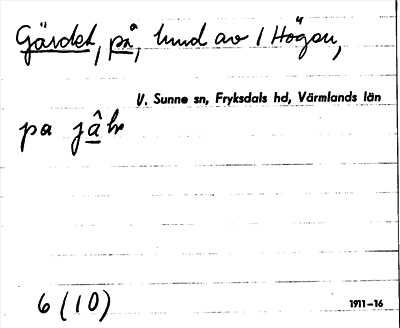 Gärdet, på, lund av 1 Högen,
V. Sunne sn, Fryksdals hd, Värmlands län
pa
6 (10)
1911–16